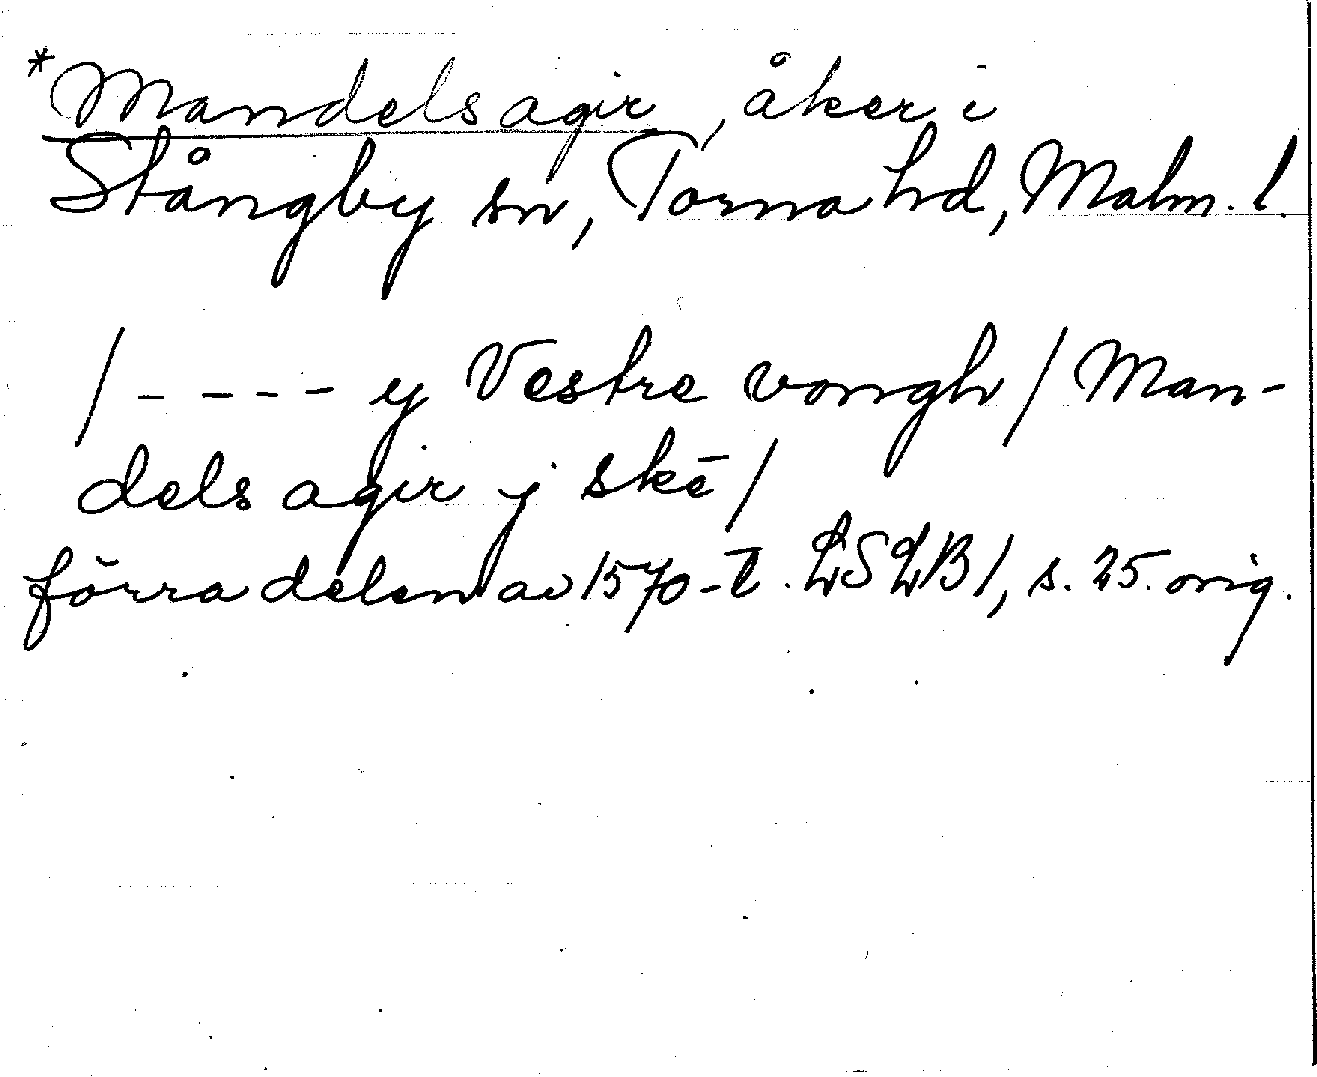 *Mandels agir, åker i
Stångby sn, Torna hd, Malm. l.
/ - - - - y Vestre vongh / Man-
dels agir j skē /
förra delen av 1570-t. LSLB 1, s. 25. orig.